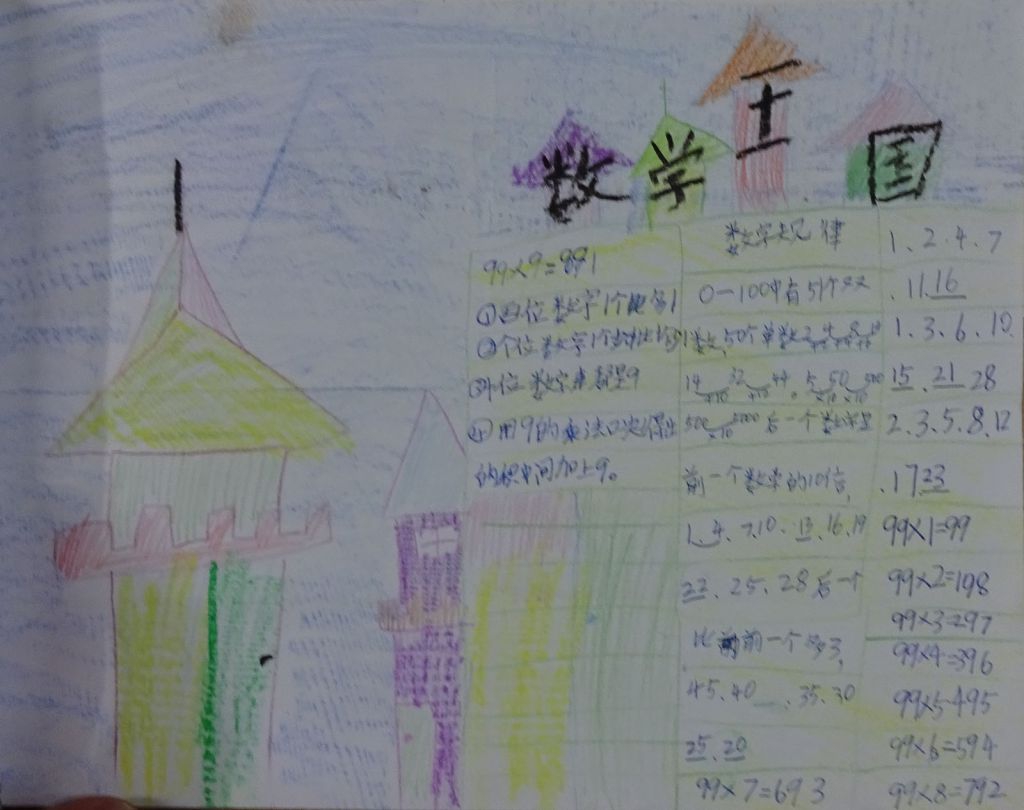 数学王国
99×9=891
①百位数字1个比1个多1
②个位数字1个比1个少1
③十位数字都是9
④用9的乘法口决得出
的积中间加上9。
数字规律
0—100中有51个双
数,50个单数
500 5000 后一个数
前一个数的10倍,
1、4、7、10、13、16、19
22、25、28后一个
比前前一个多3,
45、40、35、30
25、20
99×7=693
1、2、4、7
、11、16
1、3、6、10
15、21、28
2、3、5、8、12
、17 23
99×1=99
99×2=198
99×3=297
99×4=396
99×5=495
99×6=594
99×8=792